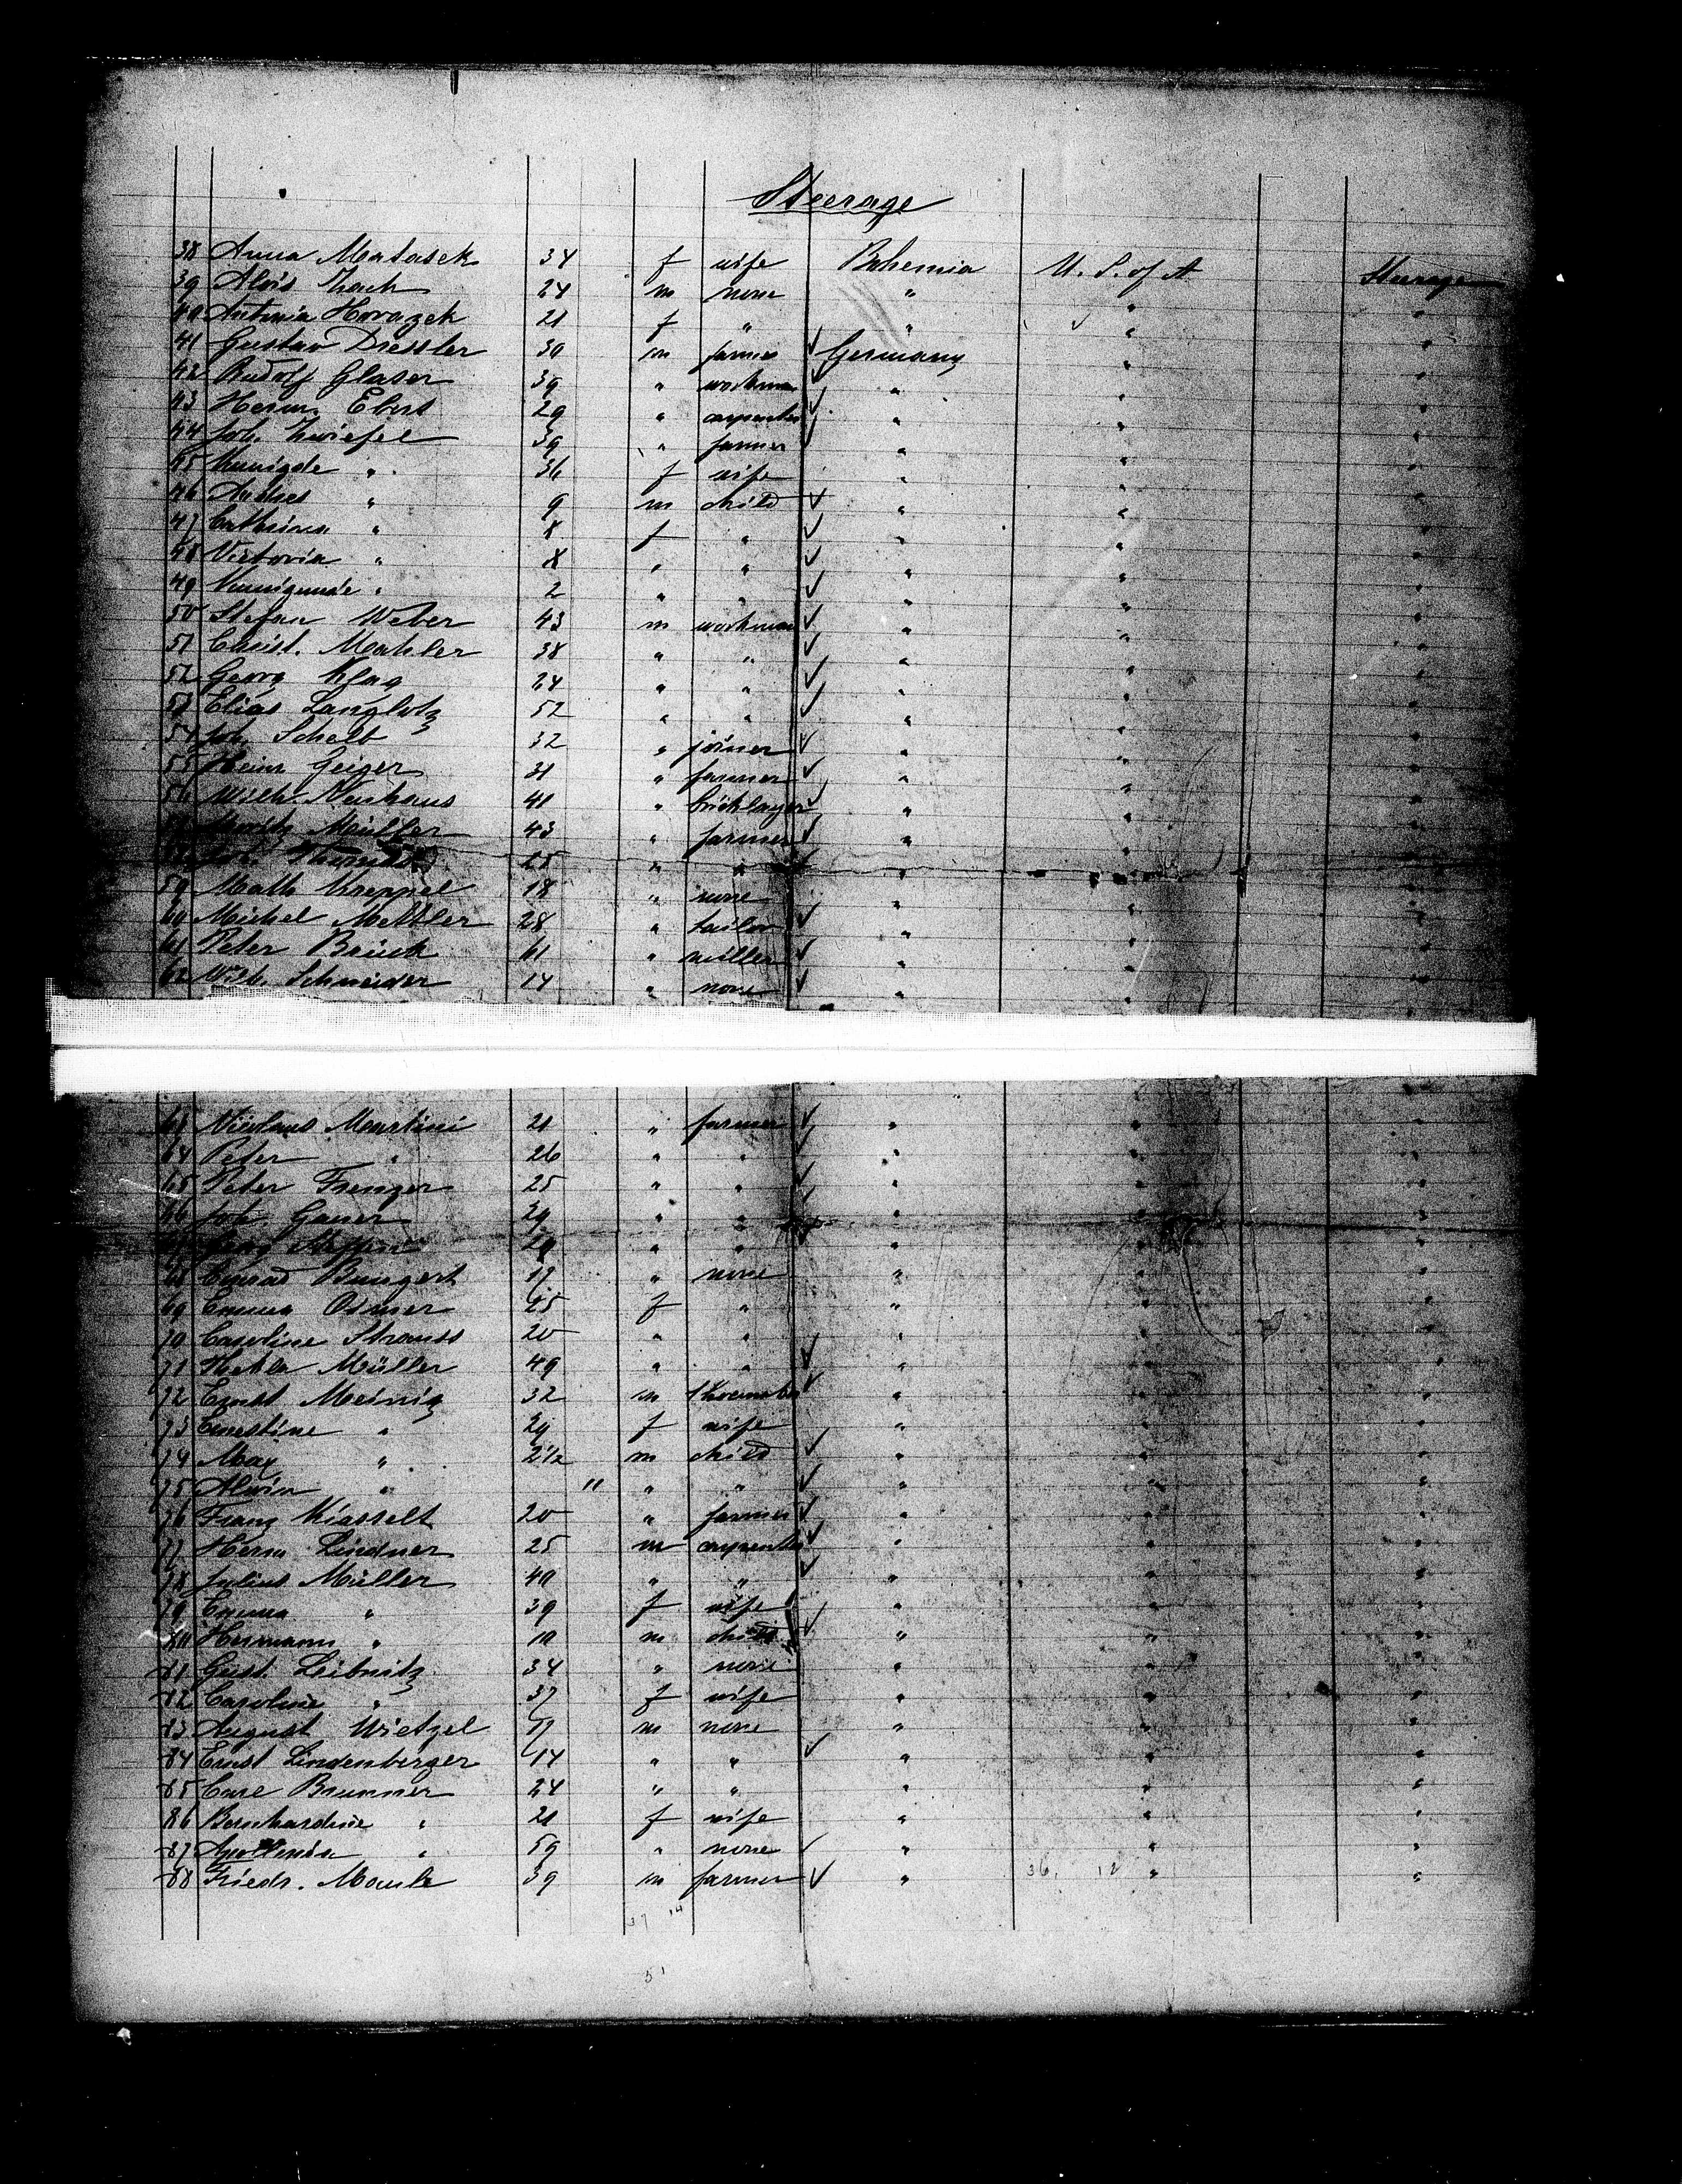 Steerage
38 Anna Matasek 34 f wife Bohemia U. S. of A Steerage
39 Alois Zach 24 m none " " "
40 Antonia Horazek 21 f " " " "
41 Gustav Dressler 30 m farmer Germany " "
42 Rudolf Glaser 39 " workman " " "
43 Herm. Ebert 29 " carpenter " " "
44 Joh. Zwiefel 39 " farmer " " "
45 " 36 f wife " " "
46 Andres " 9 m child " " "
47 Cathrina " 8 f " " " "
48 Victoria " 8 " " " " "
49 Kunigunde " 2 " " " " "
50 Stefan Weber 43 m workman " " "
51 Christ. Mahler 38 " " " " "
52 Georg Klag 24 " " " " "
53 Elias Langlotz 52 " " " " "
54 Joh. Schelb 32 " joiner " " "
55 Heinr Geiger 31 " farmer " " "
56 Wilh. Neuhaus 41 " bricklayer " " "
57 Moritz Müller 43 " farmer " " "
58 Joh. 25 " " " " "
59 Math Kneppel 18 " none " " "
60 Michel Mettler 28 " tailor " " "
61 Peter Brück 61 " miller " " "
62 Wilh. Schneider 14 " none " " "
63 Nicolaus Martini 21 " farmer " " "
64 Peter " 26 " " " " "
65 Peter Frenzer 25 " " " " "
66 Joh Gauer 29 " " " " "
67 Georg Steffen " " " " "
68 Conrad Bungert 17 " none " " "
69 Emma Osmer 25 f " " " "
70 Caroline Strauss 20 " " " " "
71 Hekla Müller 49 " " " " "
72 Ernst Meinig 32 m shoemaker " " "
73 Ernestine " 29 f wife " " "
74 Max " 2 1/2 m child " " "
75 Alwin " 11 " " " " "
76 Franz Kiasselt 20 " farmer " " "
77 Herm Lindner 25 m carpenter " " "
78 Julius Müller 40 " " " " "
79 Emma " 39 f wife " " "
80 Hermann " 10 m child " " "
81 Gust. Leibnitz 34 " none " " "
82 Caroline " 37 f wife " " "
83 August Wietzel 17 m none " " "
84 Ernst Lindenberger 14 " " " " "
85 Carl Brunner 24 " " " " "
86 Bernhardine " 21 f wife " " "
87 Apollonia " 59 " none " " "
88 Friedr. Mauk 39 m farmer " 36. 12 " "
37 14
51